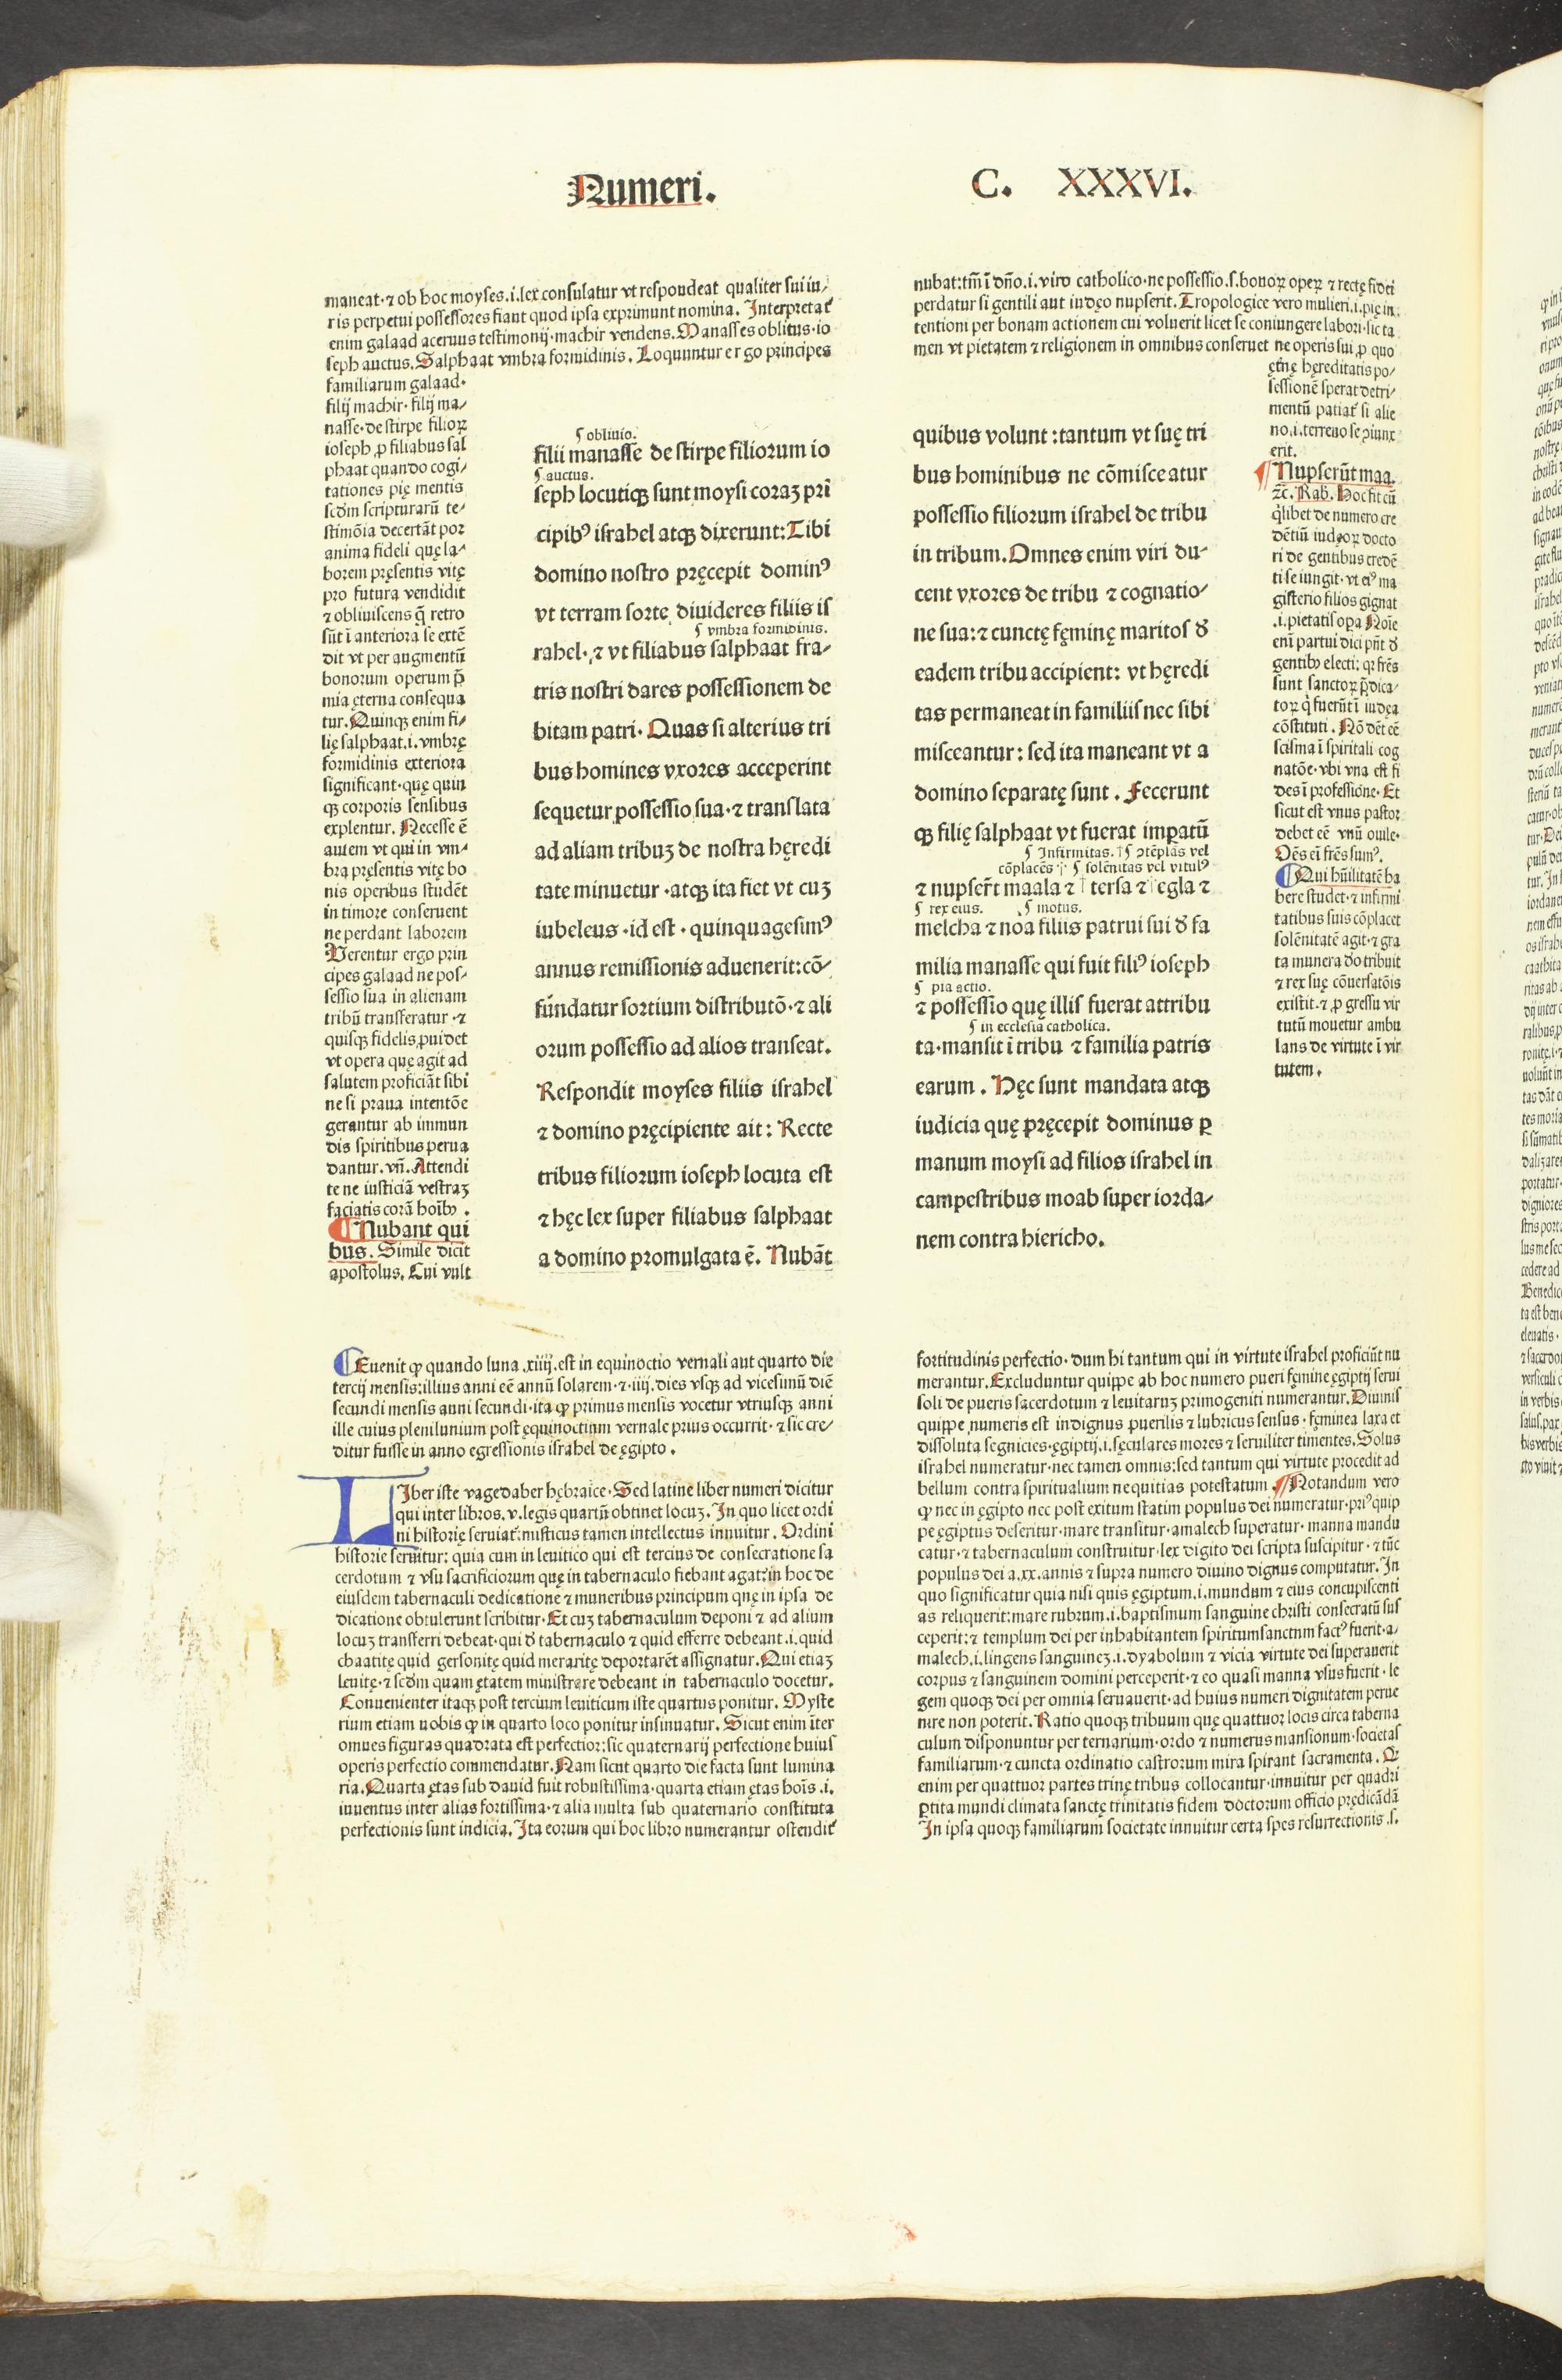 Numeri.
C. XXXVI.
maneat·⁊ ob hoc moyses.i.lex consulatur vt respondeat qualiter sui iu/
ris perpetui possessores fiant quod ipsa exprimunt nomina. Interpretat᷑
enim galaad aceruus testimonij·machir vendens. Manasses oblitus·io
seph auctus. Salphaat vmbra formidinis. Loquuntur ergo principes
familiarum galaad·
filij machir· filij ma/
nasse·de stirpe filioꝝ
ioseph ꝓ filiabus sal
phaat quando cogi/
tationes pię mentis
scd̃m scripturarũ te/
stimõia decertãt por
anima fideli quę la/
borem pręsentis vitę
pro futura vendidit
⁊ obliuiscens q̃ retro
sũt ĩ anteriora se extẽ
dit vt per augmentũ
bonorum operum p̃
mia ęterna consequa
tur. Quinqꝫ enim fi/
lię salphaat.i. vmbrę
formidinis exteriora
significant·quę quin
qꝫ corporis sensibus
explentur. Necesse ẽ
autem vt qui in vm/
bra pręsentis vitę bo
nis operibus studẽt
in timore conseruent
ne perdant laborem
Verentur ergo prin
cipes galaad ne pos/
sessio sua in alienam
tribũ transferatur·⁊
quisqꝫ fidelis ꝓuidet
vt opera quę agit ad
salutem proficiãt sibi
ne si praua intentõe
gerantur ab immun
dis spiritibus perua
dantur. vñ. Attendi
te ne iusticiã vestraꝫ
faciatis corã hoĩbꝰ.
¶ Nubant qui
bus. Simile dicit
apostolus. Cui vult
¶ obliuio.
filii manasse de stirpe filiorum io
¶ auctus.
seph locutiqꝫ sunt moysi coraꝫ pri
cipibꝰ israhel atqꝫ dixerunt: Tibi
domino nostro pręcepit dominꝰ
vt terram sorte diuideres filiis is
¶ vmbra formidinis.
rahel·⁊ vt filiabus salphaat fra/
tris nostri dares possessionem de
bitam patri· Quas si alterius tri
bus homines vxores acceperint
sequetur possessio sua·⁊ translata
ad aliam tribuꝫ de nostra hęredi
tate minuetur·atqꝫ ita fiet vt cuꝫ
iubeleus·id est·quinquagesimꝰ
annus remissionis aduenerit: cõ/
fũndatur sortium distributõ·⁊ ali
orum possessio ad alios transeat.
Respondit moyses filiis israhel
⁊ domino pręcipiente ait: Recte
tribus filiorum ioseph locuta est
⁊ hęc lex super filiabus salphaat
a domino promulgata ẽ. Nubãt
nubat: tm̃ ĩ dño.i. viro catholico·ne possessio.s. bonoꝝ opeꝝ ⁊ rectę fidei
perdatur si gentili aut iudęo nupserit. Tropologice vero mulieri.i. pię in
tentioni per bonam actionem cui voluerit licet se coniungere labori·sic ta
men vt pietatem ⁊ religionem in omnibus conseruet ne operis sui ꝓ quo
quibus volunt: tantum vt suę tri
bus hominibus ne cõmisceatur
possessio filiorum israhel de tribu
in tribum. Omnes enim viri du/
cent vxores de tribu ⁊ cognatio/
ne sua: ⁊ cunctę fęminę maritos đ
eadem tribu accipient: vt hęredi
tas permaneat in familiis nec sibi
misceantur: sed ita maneant vt a
domino separatę sunt. Fecerunt
qꝫ filię salphaat vt fuerat imꝑatũ
¶ Infirmitas. ¶ ↄtẽplãs vel
cõplacẽs· ¶ solẽnitas vel vitulꝰ
⁊ nupser̃t maala ⁊ tersa ⁊ egla ⁊
¶ rex eius. ¶ motus.
melcha ⁊ noa filiis patrui sui đ fa
milia manasse qui fuit filiꝰ ioseph
¶ pia actio.
⁊ possessio quę illis fuerat attribu
¶ in ecclesia catholica.
ta·mansit ĩ tribu ⁊ familia patris
earum. Hęc sunt mandata atqꝫ
iudicia quę pręcepit dominus ꝑ
manum moysi ad filios israhel in
campestribus moab super iorda/
nem contra hiericho.
ęt̃nę hęreditatis po/
sessionẽ sperat detri/
mentũ patiat᷑ si alie
no.i. terreno se ↄiunx
erit.
¶ Nupserũt maa.
⁊c̃. Rab. Hoc fit cũ
q̃libet de numero cre
dẽtiũ iudęoꝝ docto
ri de gentibus credẽ
ti se iungit·vt eiꝰ ma
gisterio filios gignat
.i. pietatis oꝑa Noĩe
enĩ partui dici pñt đ
gentibꝰ electi: qꝛ frẽs
sunt sanctoꝝ p̃dica/
toꝝ q̃ fuerũt ĩ iudęa
cõstituti. Nõ dẽt eẽ
scisma ĩ spiritali cog
natõe·vbi vna est fi
des ĩ professione· Et
sicut est vnus pastor
debet eẽ vnũ ouile·
Oẽs eĩ frẽs sumꝰ.
¶ Qui hũilitatẽ ha
bere studet·⁊ infirmi
tatibus suis cõplacet
solẽnitatẽ agit·⁊ gra
ta munera do tribuit
⁊ rex suę cõuersatõis
existit·⁊ ꝓ gressu vir
tutũ mouetur ambu
lans de virtute ĩ vir
tutem.
¶ Euenit ꝙ quando luna .xiiij. est in equinoctio vernali aut quarto die
tercij mensis: illius anni eẽ annũ solarem·⁊ .iiij. dies vsqꝫ ad vicesimũ diẽ
secundi mensis anni secundi·ita ꝙ primus mensis vocetur vtriusqꝫ anni
ille cuius plenilunium post ęquinoctium vernale prius occurrit·⁊ sic cre/
ditur fuisse in anno egressionis israhel de ęgipto.
LIber iste vagedaber hębraice· Sed latine liber numeri dicitur
qui inter libros. v. legis quartũ obtinet locuꝫ. In quo licet ordi
ni historię seruiat᷑: misticus tamen intellectus innuitur. Ordini
historie seruitur: quia cum in leuitico qui est tercius de consecratione sa
cerdotum ⁊ vsu sacrificiorum quę in tabernaculo fiebant agat᷑: in hoc de
eiusdem tabernaculi dedicatione ⁊ muneribus principum quę in ipsa de
dicatione obtulerunt scribitur· Et cuꝫ tabernaculum deponi ⁊ ad alium
locuꝫ transferri debeat·qui đ tabernaculo ⁊ quid efferre debeant .i. quid
chaatitę quid gersonitę quid meraritę deportarẽt assignatur. Qui etiaꝫ
leuitę·⁊ scd̃m quam ętatem ministrare debeant in tabernaculo docetur.
Conuenienter itaqꝫ post tercium leuiticum iste quartus ponitur. Myste
rium etiam nobis ꝙ in quarto loco ponitur insinuatur. Sicut enim ĩter
omnes figuras quadrata est perfectior: sic quaternarij perfectione huius
operis perfectio commendatur. Nam sicut quarto die facta sunt lumina
ria. Quarta ętas sub dauid fuit robustissima·quarta etiam ętas hoĩs .i.
iuuentus inter alias fortissima·⁊ alia multa sub quaternario constituta
perfectionis sunt indicia. Ita eorum qui hoc libro numerantur ostendit᷑
fortitudinis perfectio· dum hi tantum qui in virtute israhel proficiũt nu
merantur. Excluduntur quippe ab hoc numero pueri fęminę ęgiptij serui
soli de pueris sacerdotum ⁊ leuitaruꝫ primogeniti numerantur. Diuinis
quippe numeris est indignus puerilis ⁊ lubricus sensus·fęminea laxa et
dissoluta segnicies·ęgiptij.i. sęculares mores ⁊ seruiliter timentes. Solus
israhel numeratur·nec tamen omnis: sed tantum qui virtute procedit ad
bellum contra spiritualium nequitias potestatum. ¶ Notandum vero
ꝙ nec in ęgipto nec post exitum statim populus dei numeratur·priꝰ quip
pe ęgiptus deseritur·mare transitur·amalech superatur·manna mandu
catur·⁊ tabernaculum construitur·lex digito dei scripta suscipitur·⁊ tũc
populus dei a .xx. annis ⁊ supra numero diuino dignus computatur. In
quo significatur quia nisi quis ęgiptum .i. mundum ⁊ eius concupiscenti
as reliquerit: mare rubrum .i. baptismum sanguine christi consecratũ sus
ceperit: ⁊ templum dei per inhabitantem spiritum sanctum factꝰ fuerit·a/
malech .i. lingens sanguineꝫ .i. dyabolum ⁊ vicia virtute dei superauerit
corpus ⁊ sanguinem domini perceperit·⁊ eo quasi manna vsus fuerit·le
gem quoqꝫ dei per omnia seruauerit·ad huius numeri dignitatem perue
nire non poterit. Ratio quoqꝫ tribuum quę quattuor locis circa taberna
culum disponuntur per ternarium·ordo ⁊ numerus mansionum·societas
familiarum·⁊ cuncta ordinatio castrorum mira spirant sacramenta. Qꝛ
enim per quattuor partes trinę tribus collocantur·innuitur per quadri
ꝑtita mundi climata sanctę trinitatis fidem doctorum officio prędicãdã
In ipsa quoqꝫ familiarum societate innuitur certa spes resurrectionis .s.